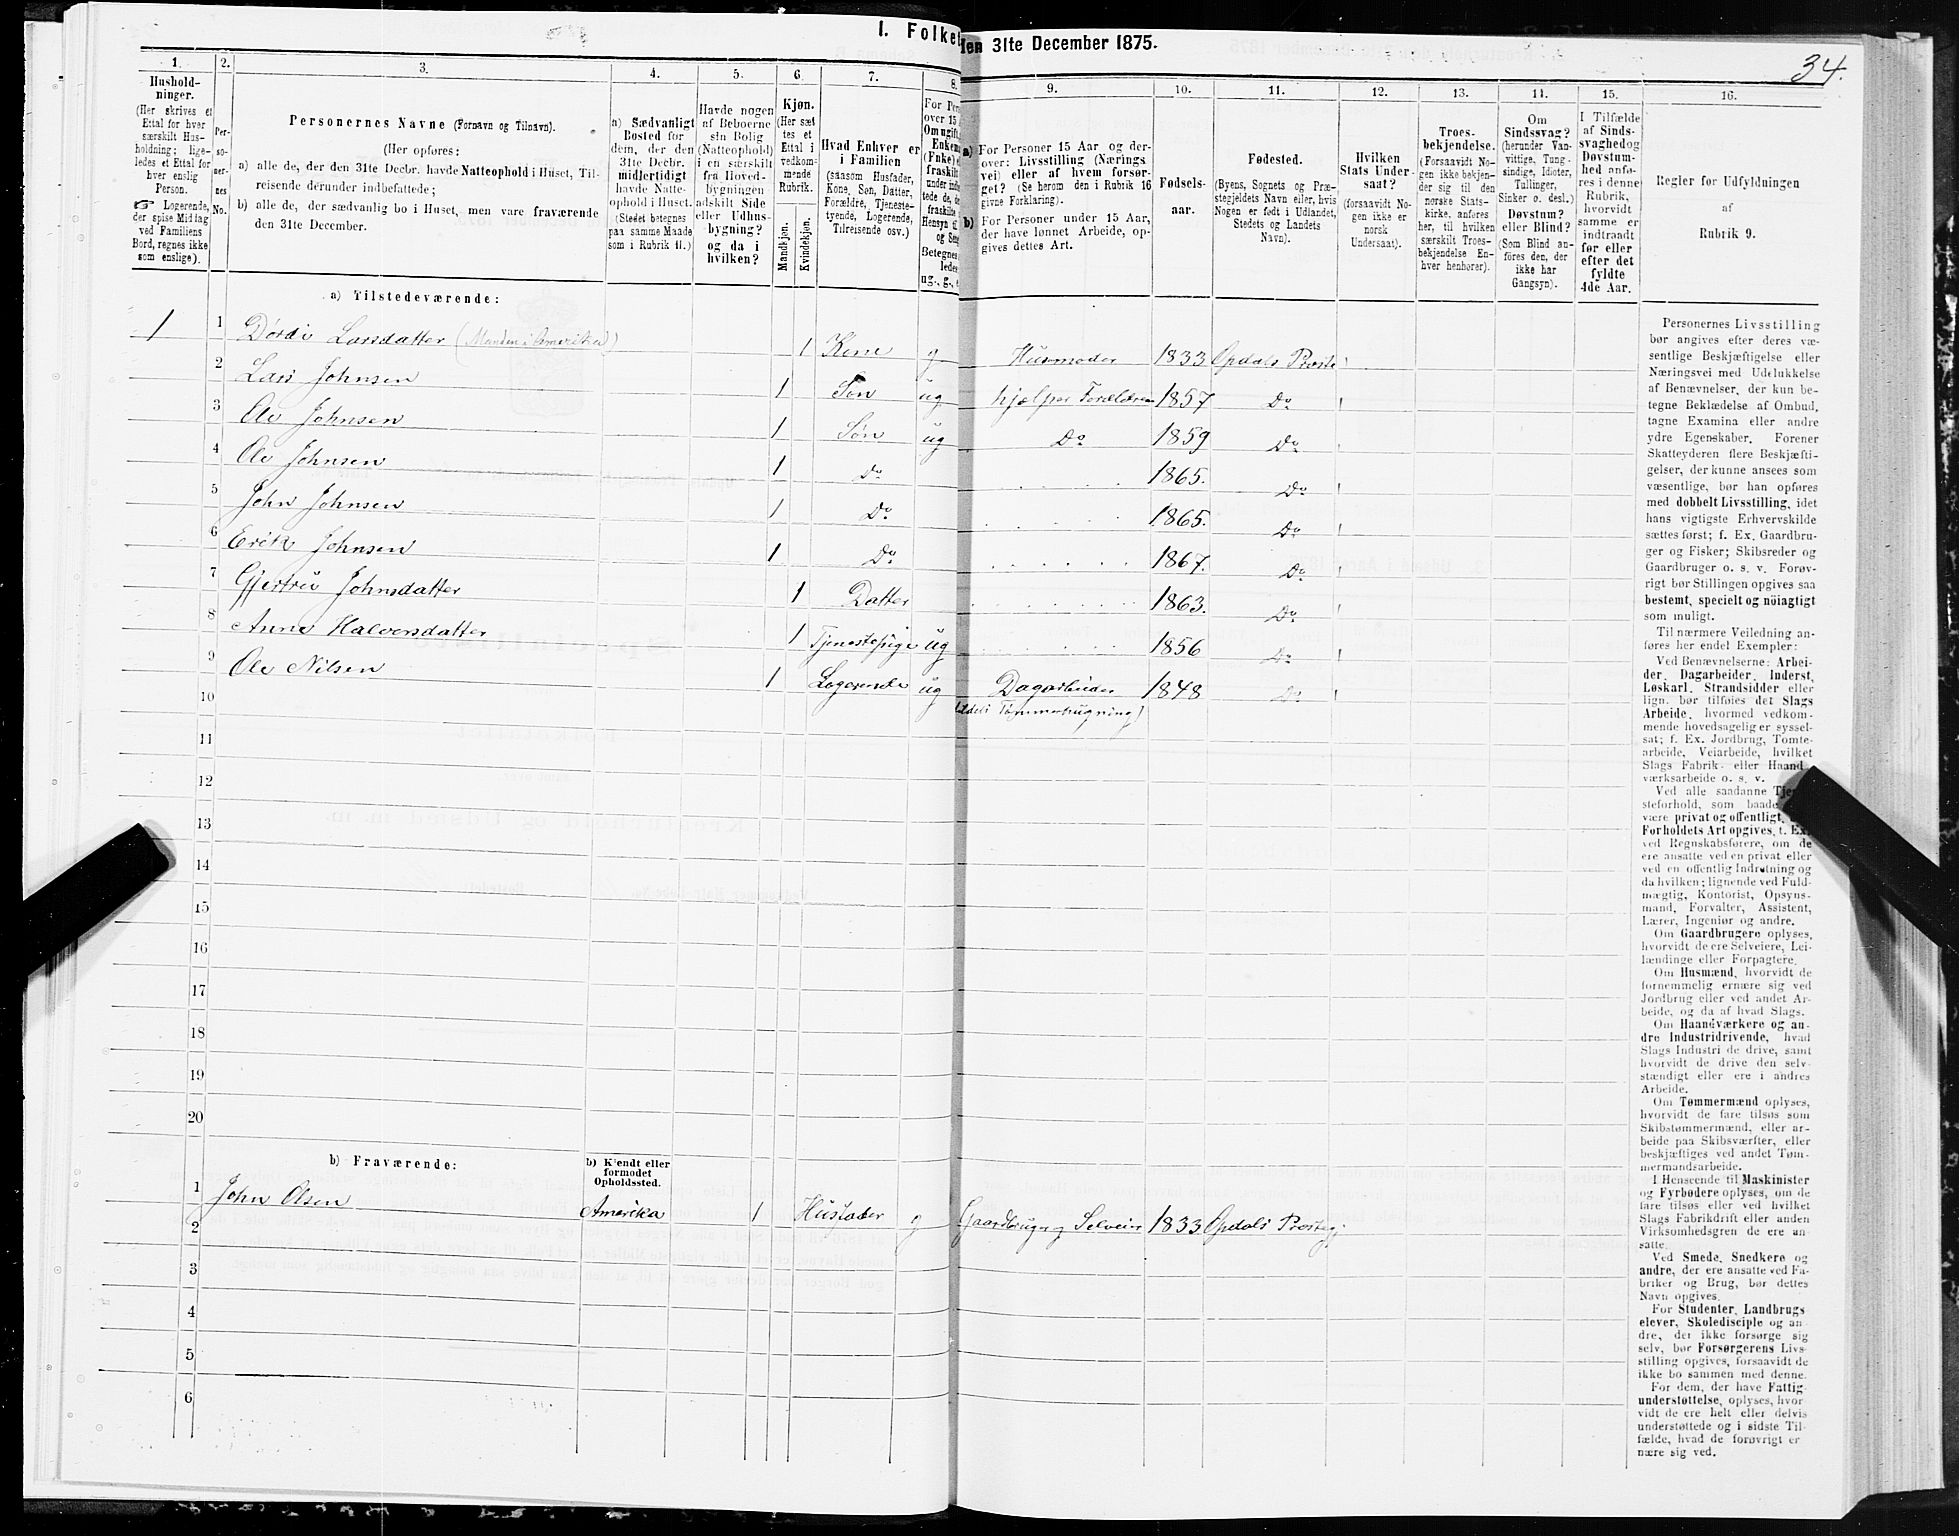 I. Folket
den 31te December 1875.
34.
1.
Hushold-
ninger.
(Her skrives et
Ettal for hver
særskilt Hus-
holdning; lige-
ledes et Ettal for
hver enslig
Person.
☞ Logerende,
der spise Middag
ved Familiens
Bord, regnes ikke
som enslige).
2.
Per-
so-
ner-
nes
No.
3.
Personernes Navne (Fornavn og Tilnavn).
(Her opføres:
a) alle de, der den 31te Decbr. havde Natteophold i Huset, Til-
reisende derunder indbefattede;
b) alle de, der sædvanlig bo i Huset, men vare fraværende
den 31te December.
4.
a) Sædvanligt
Bosted for
dem, der den
31te Decbr.
midlertidigt
havde Natte-
ophold i Huset.
(Stedet betegnes
paa samme Maade
som i Rubrik 11.)
5.
Havde nogen
af Beboerne
sin Bolig
(Natteophold)
i en særskilt
fra Hoved-
bygningen
adskilt Side
eller Udhus-
bygning?
og da i
hvilken?
6.
Kjøn.
(Her sæt
tes et
Ettal i
vedkom-
mende
Rubrik.
Mandkjøn.
Kvindekjøn.
7.
Hvad Enhver er
i Familien
(saasom Husfader,
Kone, Søn, Datter,
Forældre, Tjeneste-
tyende, Logerende,
Tilreisende osv.)
8.
For Per
over 15
Om ugift,
Enkem
(Enke) e
fraskilt
under indb
tede de, d
fraskilte
Hensyn ti
og Sen
Betegnes
ledes
ug., g., e
9.
a) For Personer 15 Aar og der-
over: Livsstilling (Nærings
vei) eller af hvem forsør-
get? (Se herom den i Rubrik 16
givne Forklaring).
b) For Personer under 15 Aar,
der have lønnet Arbeide, op-
gives dettes Art.
10.
Fødsels-
aar.
11.
Fødested.
(Byens, Sognets og Præ-
stegjeldets Navn eller, hvis
Nogen er født i Udlandet,
Stedets og Landets
Navn).
12.
Hvilken
Stats Under-
saat?
(forsaavidt No-
gen ikke er
norsk
Undersaat).
13.
Troes-
bekjendelse.
(Forsaavidt No-
gen ikke bekjen-
der sig til den
norske Stats-
kirke, anføres
her, til hvilken
særskilt Troes-
bekjendelse En-
hver henhører).
14.
Om
Sindssvag?
(herunder Van-
vittige, Tung-
sindige, Idioter,
Tullinger,
Sinker o. desl.)
Døvstum?
eller Blind?
(Som Blind an-
föres den, der
ikke har
Gangsyn).
15.
I Tilfælde
af Sinds-
svaghed og
Døvstum-
hed anfø-
res i denne
Rubrik,
hvorvidt
samme er
indtraadt
før eller
efter det
fyldte
4de Aar.
16.
Regler før Udfyldningen
af
Rubrik 9.
a) Tilstedeværende:
1 1 Dordi Larsdatter (Manden i Amerika) 1 Kone g Husmoder 1833 Opdals Præste
2 Lars Johnsen 1 Søn ug hjelper Forældrene 1857 Do
3 Ole Johnsen 1 Søn ug Do 1859 Do
4 Ole Johnsen 1 Do 1865. Do
5 John Johnsen 1 Do 1865. Do
6 Erik Johnsen 1 Do 1867. Do
7 Gjertru Johnsdatter 1 Datter 1863. Do
8 Anne Halvorsdatter 1 Tjenestepige ug 1856 Do
9 Ole Nilsen 1 Logerende ug Dagarbeider 1848 Do
10 Tømmerhugning)
11
12
13
14
15
16
17
18
19
20
b) Fraværende:
b) Kjendt eller
formodet
Opholdssted.
1 John Olsen Amerika 1 Husfader g Gaardbruger Selveier 1833 Opdals Præstegj.
2
3
4
5
6
Personernes Livsstilling
bør angives efter deres væ-
sentlige Beskjæftigelse eller
Næringsvei med Udelukkelse
af Benævnelser, der kun be-
tegne Beklædelse af Ombud,
tagne Examina eller andre
ydre Egenskaber. Forener
Skatteyderen flere Beskjæfti-
gelser, der kunne ansees som
væsentlige, bør han opføres
med dobbelt Livsstilling, idet
hans vigtigste Erhvervskilde
sættes først; f. Ex. Gaardbru-
ger og Fisker; Skibsreder og
Gaardbruger o. s. v. Forøv-
rigt bør Stillingen opgives saa
bestemt, specielt og nöiagtigt
som muligt.
Til nærmere Veiledning an-
føres her endel Exempler:
Ved Benævnelserne: Arbei-
der, Dagarbeider, Inderst,
Løskarl, Strandsidder eller
lign. bør tilføies det Slags
Arbeide, hvormed vedkom-
mende hovedsagelig er syssel-
sat; f. Ex. Jordbrug, Tomte-
arbeide, Veiarbeide, hvilket
Slags Fabrik- eller Haand
værksarbeide o. s. v.
Ved alle saadanne
steforhold, som baade
være privat og offentligt,
Forholdets Art opgives, t. Ex.
ved Regnskabsførere, om de
ere ansatte ved en privat eller
ved en offentlig Indretning og
da hvilken; lignende ved Fuld-
mægtig, Kontorist, Opsyns-
mand, Forvalter, Assistent,
Lærer, Ingeniør og andre.
Om Gaardbrugere oplyses,
hvorvidt de ere Selveiere, Lei-
lændinge eller Forpagtere.
Om Husmænd, hvorvidt de
fornemmelig ernære sig ved
Jordbrug eller ved andet Ar-
beide, og da af hvad Slags.
Om Haandværkere og an-
dre Industridrivende, hvad
Slags Industri de drive, samt
hvorvidt de drive den selv-
stændigt eller ere i andres
Arbeide.
Om Tømmermænd oplyses,
hvorvidt de fare tilsøs som
Skibstømmermænd, eller ar-
beide paa Skibsværfter, eller
beskjæftiges ved andet Tøm-
mermandsarbeide.
I Henseende til Maskinister
og Fyrbødere oplyses, om de
fare tilsøs eller ved hvilket
Slags Fabrikdrift eller anden
Virksomhedsgren de ere an-
satte.
Ved Smede, Snedkere og
andre, der ere ansatte ved Fa-
briker og Brug, bør dettes
Navn opgives.
For Studenter, Landbrugs
elever, Skoledisciple og an-
dre, der ikke forsørge sig
selv, bør Forsørgerens Livs-
stilling opgives, forsaavidt de
ikke bo sammen med denne.
For dem, der have Fattig-
understøttelse, oplyses, hvor
vidt de ere helt eller delvis
understøttede og i sidste Til-
fælde, hvad de forøvrigt er
nære sig ved.